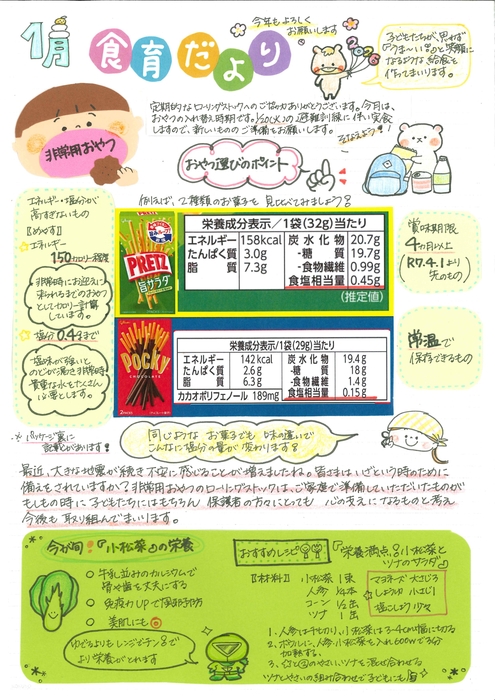 1月 食育だより
今年もよろしく
お願いします
子どもたちが、思わず
『うま〜い!!』と笑顔に
なるような給食を
作ってまいります。
定期的なローリングストックへのご協力ありがとうございます。今月は、
おやつの入れ替え時期です。1/20(火)の避難訓練に伴い実食
しますので、新しいもののご準備をお願いします。
そなえよう!!
非常用おやつ
おやつ選びのポイント
例えば、2種類のお菓子を見比べてみましょう!
エネルギー・塩分が
高すぎないもの
『めやす』
エネルギー
150カロリー程度
非常時にお迎えに
来られるまでのおやつ
としてカロリー計算
しています。
塩分0.4まで
塩味のが強いと、
のどが渇き非常時
貴重な水もたくさん
必要とします。
PRETZ
旨サラダ
栄養成分表示/1袋(32g)当たり
エネルギー 158kcal 炭水化物 20.7g
たんぱく質 3.0g -糖質 19.7g
脂質 7.3g -食物繊維 0.99g
食塩相当量 0.45g
(推定値)
Pocky
CHOCOLATE
栄養成分表示/1袋(29g)当たり
エネルギー 142kcal 炭水化物 19.4g
たんぱく質 2.6g -糖質 18g
脂質 6.3g -食物繊維 1.4g
カカオポリフェノール 189mg 食塩相当量 0.15g
賞味期限
4ヶ月以上
(R7.4.1より
先のもの)
常温で
保存できるもの
※パッケージ裏に
記載があります!
同じようなお菓子でも味の違いで
こんなに塩分の量が変わります!
最近、大きな地震が続き不安に感じることが増えましたね。皆さまはいざという時のために
備えをされていますか?非常用おやつのローリングストックは、ご家庭で準備していただいたものが
もしもの時に子どもたちにはもちろん保護者の方々にとっても心の支えになるものと考え
今後も取り組んでまいります。
今が旬!『小松菜』の栄養
牛乳並みのカルシウムで
骨や歯を丈夫に
免疫力UPで風邪予防
美肌にも
ゆでるよりもレンジでチン!!で
より栄養がとれます
おすすめレシピ
『栄養満点!!小松菜と
ツナのサラダ』
【材料】 小松菜 1束
人参 1/2本
コーン 1/2缶
ツナ 1缶
マヨネーズ 大さじ2
しょうゆ 小さじ1
塩こしょう 少々
1、人参は千切り、小松菜は3~4cm幅に切る
2、ボウルに、人参・小松菜を入れ600wで3分
加熱する。